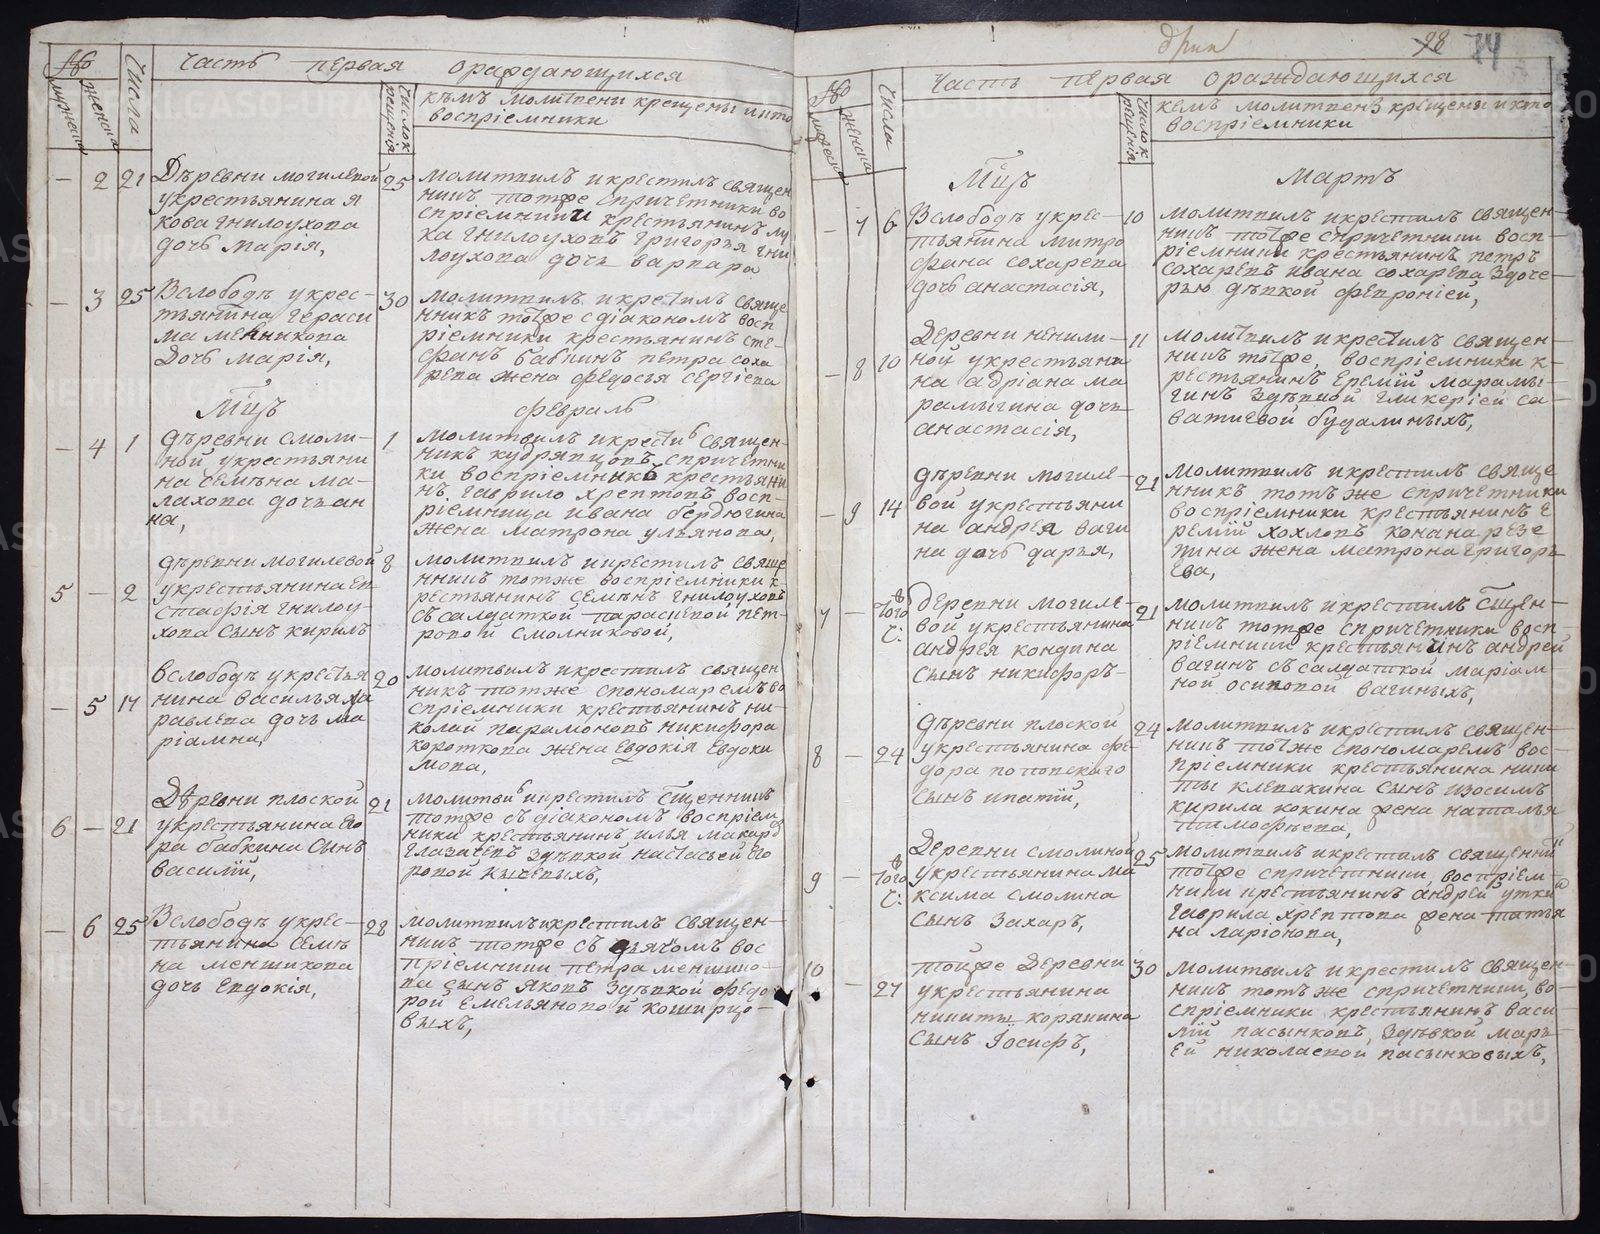 №
мужеска
женска
Числа
Часть первая ораждающихся
Число к
рещенія
кѣмъ молитвены крещены и кто
воспріемники
— 2 21 Дѣревни могилевой
укрестьянина я
кова гнилоухова
дочь марія,
25 молитвилъ и крестилъ священ
никъ тотже спричетники во
спріемники крестьянинъ лу
ка гнилоуховъ григорья гни
лоухова дочь варвара
— 3 25 Вслободѣ укрес-
тьянина гераси
ма меншикова
Дочь марія,
30 молитвилъ и крестилъ свяще
нникъ тотже с діакономъ восп
ріемники крестьянинъ сте-
фанъ бабкинъ петра соха
рева жена федосья сергіева
Мцъ февраль
— 4 1 дѣревни смоли-
ной укрестьяни
на семена ма-
лахова дочь ан
на,
1 молитвилъ и крестилъ священ-
никъ кудрявцовъ спричетни
ки воспріемникъ крестьяни
нъ гаврило хрептовъ восп-
ріемница ивана бердюгина
жена матрона ульянова,
5 — 2 дѣревни могилевой
укрестьянина ев
стафія гнилоу-
хова сынъ кирилъ
8 молитвилъ и крестилъ свяще
нникъ тотже воспріемники к-
рестьянинъ семенъ гнилоуховъ
съ салдаткой парасковой пет-
ровой смолниковой,
— 5 17 вслободѣ укрестья
нина василья жу
равлева дочь ма
ріамна,
20 молитвилъ и крестилъ священ
никъ тотже спономаремъ во
спріемники крестьянинъ ни-
колай парамоновъ никифора
короткова жена евдокія евдоки
мова,
6 — 21 Деревни плоской
укрестьянина его
ра бабкина сынъ
василій,
21 молитвилъ и крестилъ сщенникъ
тотже съ діакономъ воспріем
ники крестьянинъ илья макаровъ
глазачевъ здѣвкой настасьей его
ровой кычевыхъ,
— 6 25 Вслободѣ укрес-
тьянина семе
на меншикова
дочь евдокія,
28 молитвилъ и крестилъ священ-
никъ тотже съ дьячомъ вос
пріемники петра меншико-
ва сынъ яковъ здѣвкой федо
рой емельяновой кошкрцо-
выхъ,
28 74
№
мужеска
женска
Числа
Часть первая ораждающихся
Число к
рещенія
кемъ молитвенъ крещены и кто
воспріемники
Мцъ Мартъ
— 7 6 Вслободѣ укрес-
тьянина митро
фана сохарева
дочь анастасія,
10 молитвилъ и крестилъ священ-
никъ тотже спричетники восп-
ріемники крестьянинъ петръ
сохаревъ ивана сохарева здоче-
рью дѣвкой февроніей,
— 8 10 Деревни ненили-
ной укрестьяни
на адріана ма
рамыгина дочь
анастасія,
11 молитвилъ и крестилъ священ-
никъ тотже, воспріемники к-
рестьянинъ еремій марамы-
гинъ здѣвкой гликеріей са-
ватиевой бугалиныхъ,
— 9 14 дѣревни могиле-
вой укрестьяни
на андрея ваги
на дочь дарья,
21 молитвилъ и крестилъ свяще
нникъ тотъ же спричетники
воспріемники крестьянинъ е
ремій хохловъ конана резе
пина жена матрона григорь
ева,
7 — того
ч: деревни могиле-
вой укрестьянина
андрея кондина
сынъ никифоръ-
21 молитвилъ и крестилъ сщен-
никъ тотже спричетники восп-
ріемники крестьянинъ андрей
вагинъ съ салдаткой маріам-
ной осиповой вагиныхъ,
8 — 24 дѣревни плоской
укрестьянина фе-
дора потопского
сынъ ипатій,
24 молитвилъ и крестилъ священ-
никъ тотже спономаремъ вос-
пріемники крестьянина ники
ты клевакина сынъ изосимъ
кирила кокина жена наталья
тимофеева,
9 — того
ч: Деревни смолиной
укрестьянина ма
ксима смолина
сынъ захаръ,
25 молитвилъ и крестилъ священникъ
тотже спричетники, воспріем-
ники крестьянинъ андрей уткинъ
гаврила хрептова жена татья
на ларіонова,
10 — 27 тойже Деревни
укрестьянина
никиты корякина
сынъ Іосифъ,
30 молитвилъ и крестилъ священ-
никъ тотъ же спричетники, во-
спріемники крестьянинъ васи-
лій пасынковъ, здѣвкой марь-
ей николаевой пасынковыхъ,